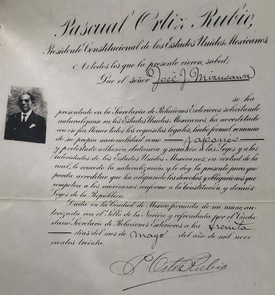 Pascual Ortiz Rubio,
Presidente Constitucional de los Estados Unidos Mexicanos,
A todos los que la presente vieren, sabed:
Que el señor José J. Mizusawa
se ha
presentado en la Secretaría de Relaciones Exteriores solicitando
naturalizarse en los Estados Unidos Mexicanos, ha acreditado
con su fin, llenar todos los requisitos legales, hecho formal renuncia
de su propia nacionalidad como japonés
y protestado adhesión, obediencia y sumisión a las leyes y a las
Autoridades de los Estados Unidos Mexicanos; en virtud de lo cual,
le concedo la naturalización y le doy la presente para que
pueda acreditar que ha adquirido los derechos y obligaciones que
competen a los mexicanos conforme a la Constitución y demás
Leyes de la República.
Dada en la Ciudad de México firmada de mi mano,
autorizada con el Sello de la Nación y refrendada por el Ciuda-
dano Secretario de Relaciones Exteriores a los treinta
días del mes de mayo del año de mil nove-
cientos treinta
P. Ortiz Rubio